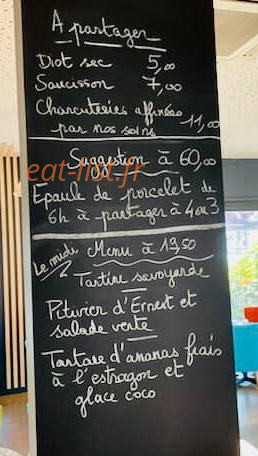 A partager
Diot sec 5,00
Saucisson 7,00
Charcuteries affinées
par nos soins 11,00
Suggestion à 60,00
eat-list.fr
Epaule de porcelet de
6h à partager à 4 ou 3
Le midi Menu à 19,50
Tartine savoyarde
Pitivier d'Ernest et
salade verte
Tartare d'ananas frais
à l'estragon et
glace coco